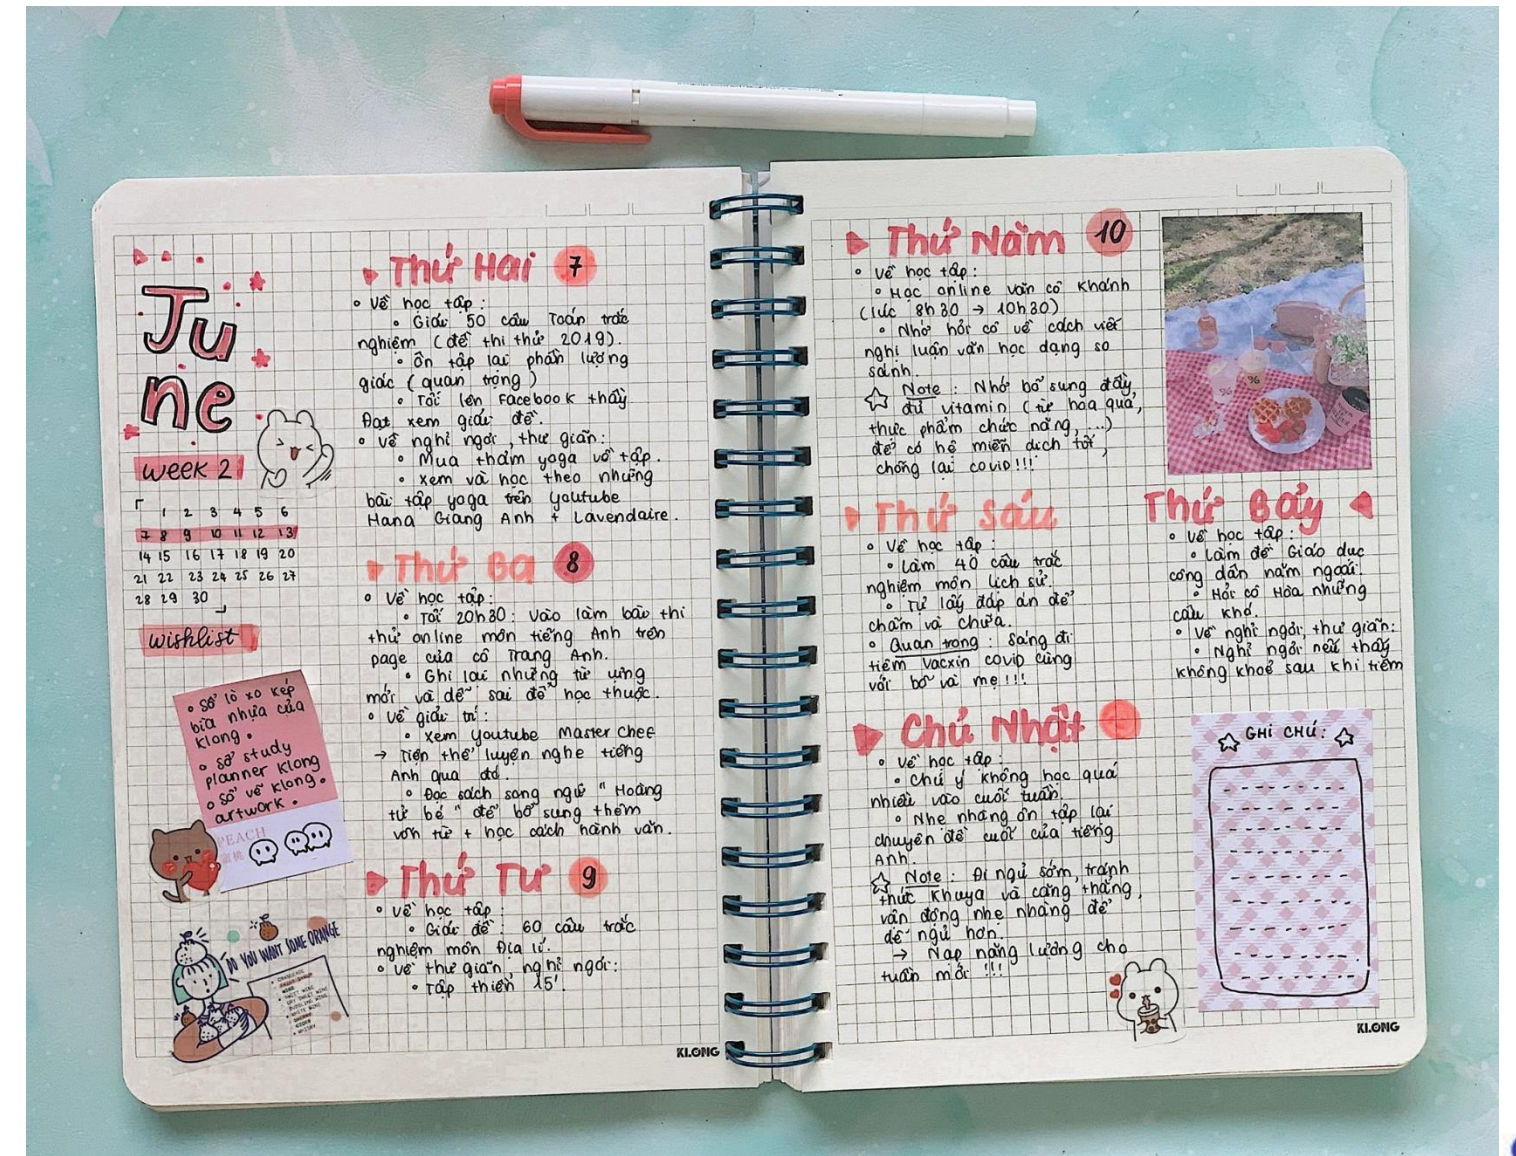 June
week 2
1 2 3 4 5 6
7 8 9 10 11 12 13
14 15 16 17 18 19 20
21 22 23 24 25 26 27
28 29 30
wishlist
• Sổ lò xo kép
bìa nhựa của
Klong.
• Sổ study
planner Klong
• Sổ vẽ Klong.
artwork.
PEACH
DO YOU WANT SOME ORANGE
Thứ Hai 7
• Về học tập:
• Giải 50 câu Toán trắc
nghiệm (đề thi thử 2019).
• Ôn tập lại phần lượng
giác (quan trọng)
• Tối lên Facebook thầy
Đạt xem giải đề.
• Về nghỉ ngơi, thư giãn:
• Mua thảm yoga về tập.
• Xem và học theo những
bài tập yoga trên youtube
Hana Giang Anh + Lavendaire.
Thứ Ba 8
• Về học tập:
• Tối 20h30: Vào làm bài thi
thử online môn tiếng Anh trên
page của cô Trang Anh.
• Ghi lại những từ vựng
mới và dễ sai để học thuộc.
• Về giải trí:
• Xem Youtube Master Chef
→ Tiện thể luyện nghe tiếng
Anh qua đó.
• Đọc sách song ngữ "Hoàng
tử bé" để bổ sung thêm
vốn từ + học cách hành văn.
Thứ Tư 9
• Về học tập:
• Giải đề: 60 câu trắc
nghiệm môn Địa lí.
• Về thư giãn, nghỉ ngơi:
• Tập thiền 15'.
KLONG
Thứ Năm 10
• Về học tập:
• Học online văn cô Khánh
(lúc 8h30 → 10h30)
• Nhớ hỏi cô về cách viết
nghị luận văn học dạng so
sánh.
☆ Note: Nhớ bổ sung đầy
đủ vitamin (từ hoa quả,
thực phẩm chức năng,...)
để có hệ miễn dịch tốt,
chống lại covid!!!
Thứ Sáu
• Về học tập:
• Làm 40 câu trắc
nghiệm môn Lịch sử.
• Tự lấy đáp án để
chấm và chữa.
• Quan trọng: Sáng đi
tiêm vacxin covid cùng
với bố và mẹ!!!
Chủ Nhật
• Về học tập:
• Chú ý không học quá
nhiều vào cuối tuần.
• Nhẹ nhàng ôn tập lại
chuyên đề cuối của tiếng
Anh.
☆ Note: Đi ngủ sớm, tránh
thức khuya và căng thẳng,
vận động nhẹ nhàng để
dễ ngủ hơn.
→ Nạp năng lượng cho
tuần mới!!!
Thứ Bảy
• Về học tập:
• Làm đề Giáo dục
công dân năm ngoái.
• Hỏi cô Hòa những
câu khó.
• Về nghỉ ngơi, thư giãn:
• Nghỉ ngơi nếu thấy
không khoẻ sau khi tiêm
☆ GHI CHÚ: ☆
KLONG